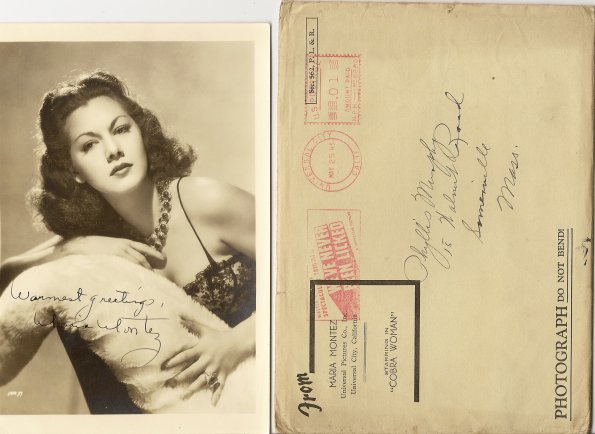 Warmest greetings,
Maria Montez
Sec. 562, P. L. & R.
.01
UNIVERSAL CITY
CALIF.
WE'VE NEVER
BEEN LICKED
Phyllis Murphy
15 Walnut Road
Somerville
Mass.
From
MARIA MONTEZ
Universal Pictures Co., Inc.
Universal City, California
STARRING IN
"COBRA WOMAN"
PHOTOGRAPH DO NOT BEND!